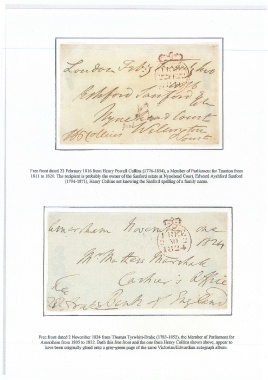 London Feb
Ashford Sanford Esq
Nynehead Court
Wellington
H P Collins
Free front dated 22 February 1816 from Henry Powell Collins (1776-1854), a Member of Parliament for Taunton from
1811 to 1820. The recipient is probably the owner of the Sanford estate at Nynehead Court, Edward Ayshford Sanford
(1794-1871), Henry Collins not knowing the Sanford spelling of a family name.
Amersham November one
1824
FREE
1824
Cashier's Office
Bank of England
Free front dated 2 November 1824 from Thomas Tyrwhitt-Drake (1783-1852), the Member of Parliament for
Amersham from 1805 to 1832. Both this free front and the one from Henry Collins shown above, appear to
have been originally glued onto a grey-green page of the same Victorian/Edwardian autograph album.